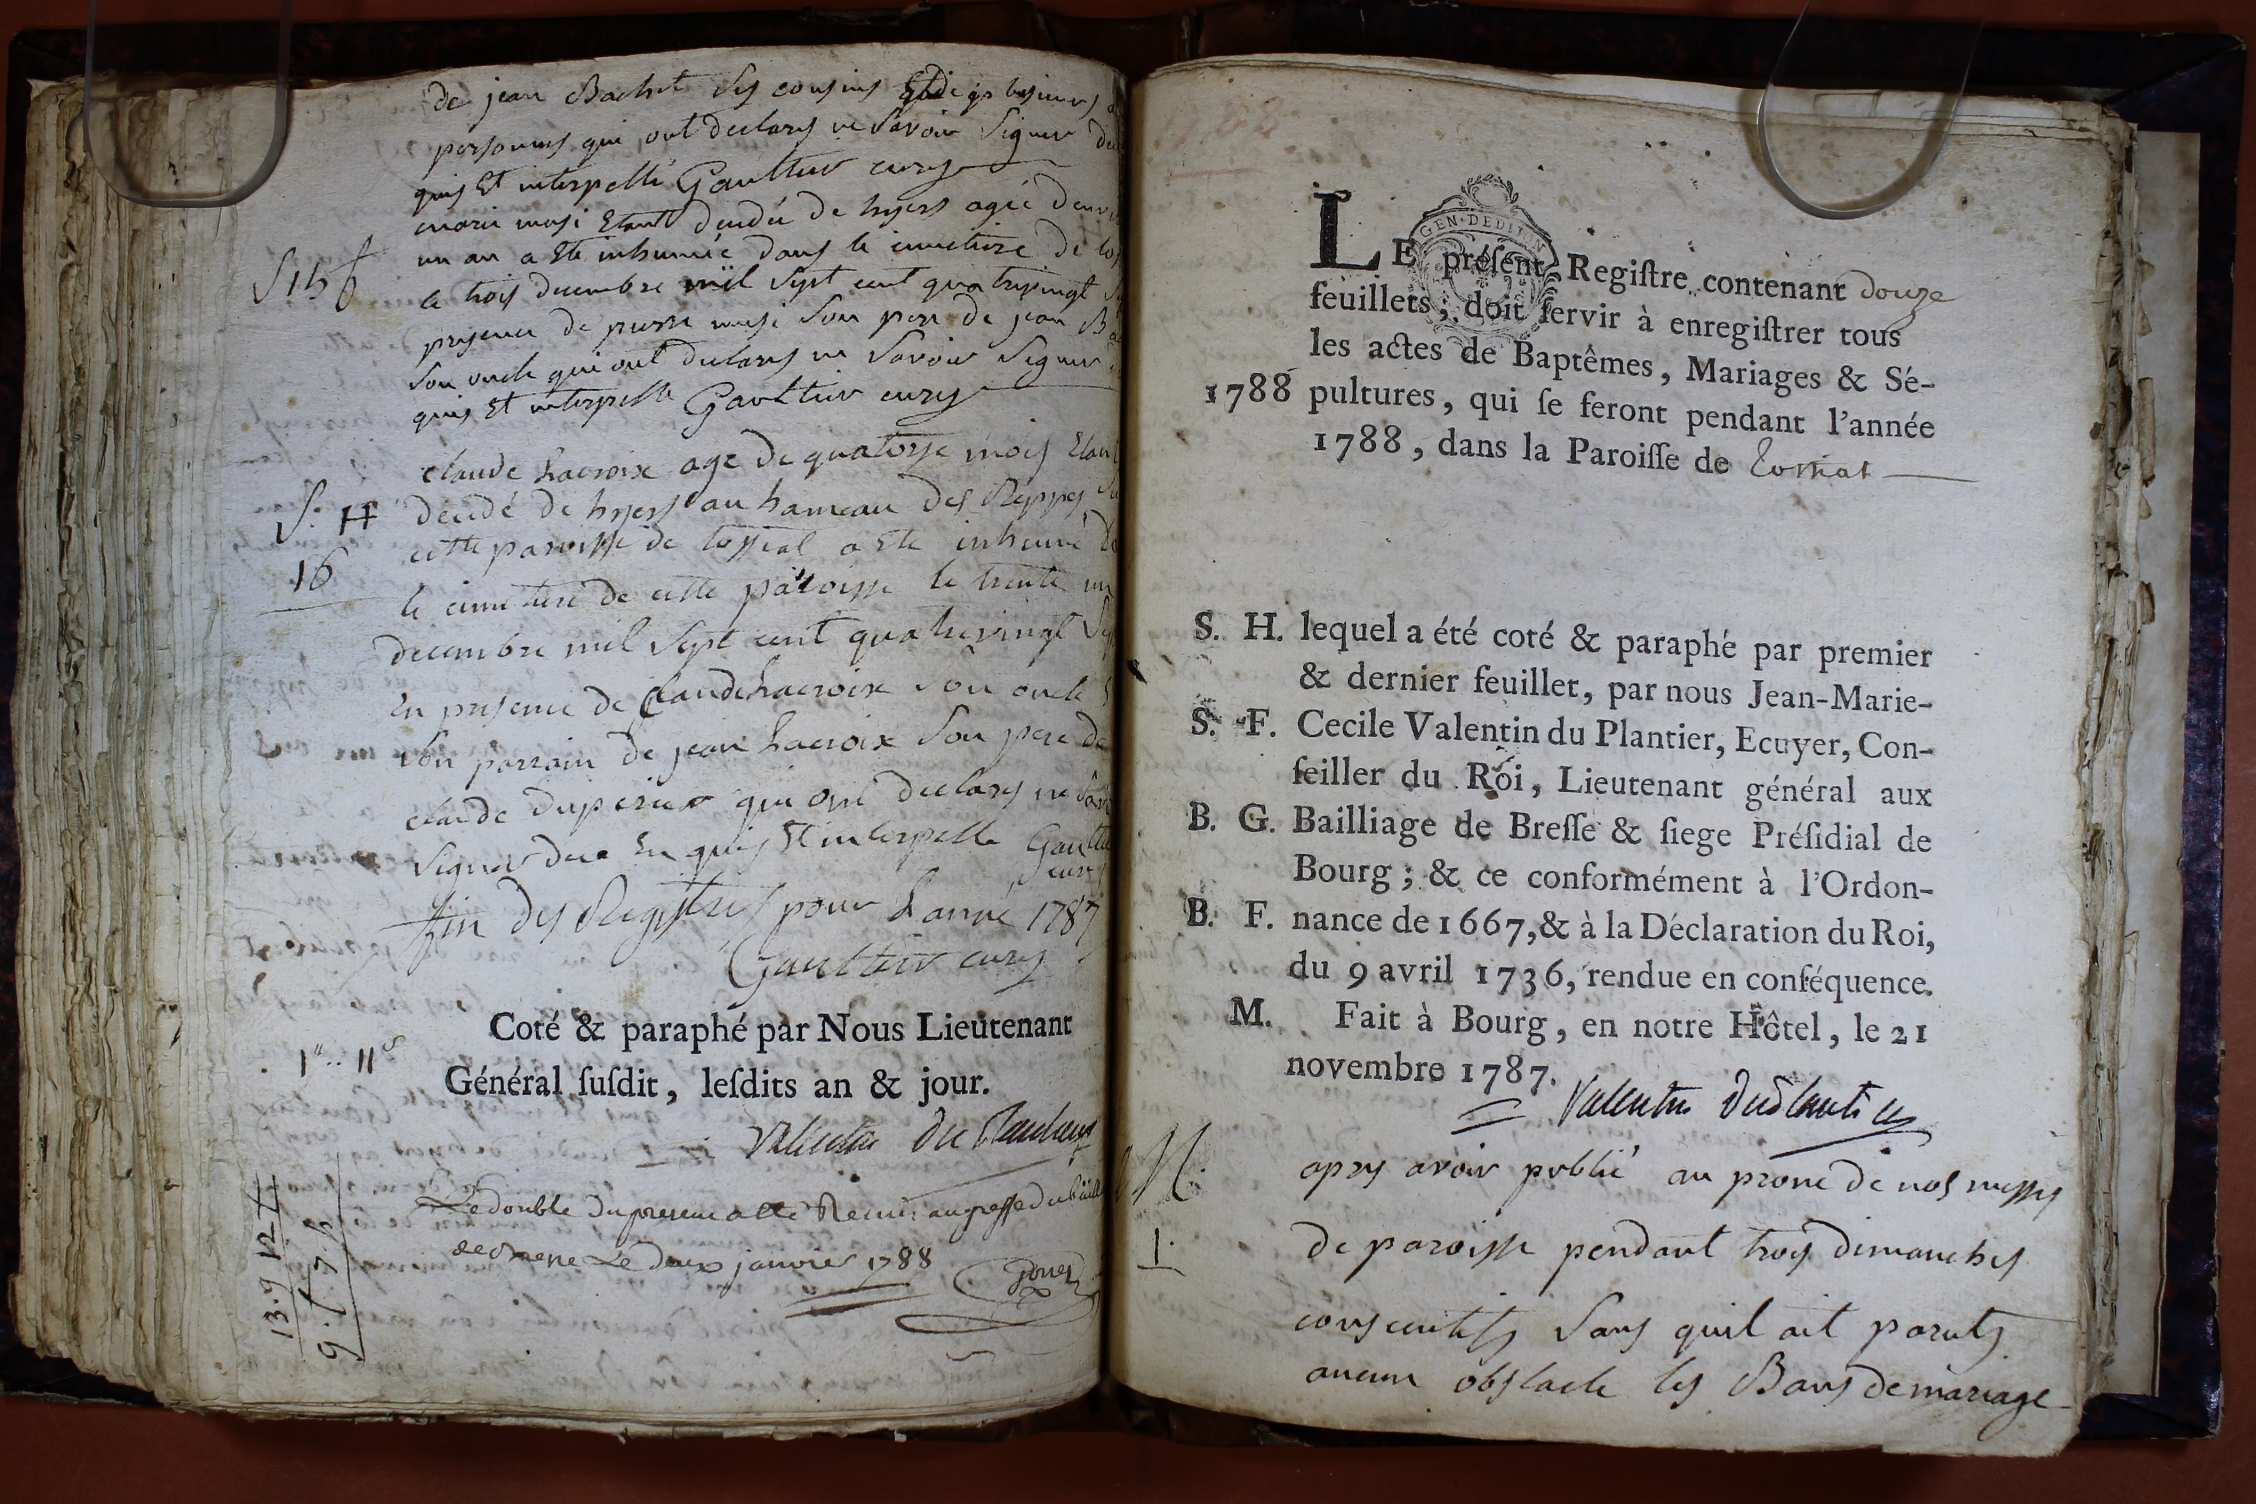 de jean Bachet ses cousins Et de plusieurs
personnes qui ont declarés ne savoir signer
quis Et interpellé Gaultier curé
marie musi Etant decedée de hyers agée denv
S 15 f
un an a Ete inhumée dans le cimetiere de
le trois decembre mil sept cent quatrevingt
presence de pierre musi son pere de jean
son oncle qui ont declarés ne savoir signer
quis Et interpellé Gaultier curé
claude Lacroix age de quatorse mois Etant
S. H
decedé de hyers au hameau des Reppes
cette paroisse de tossiat a Ete inhumé
16
le cimetiere de cette paroisse le trente un
decembre mil sept cent quatrevingt
En presence de Claude Lacroix son oncle
son parrain de jean Lacroix son pere de
claude duperier qui ont declarés ne
signer de ce En quis Et interpellé Gaultier
curé
fin des Registres pour Lannée 1787
Gaultier curé
Coté & paraphé par Nous Lieutenant
1er.. 11e
Général ſuſdit, leſdits an & jour.
Valentin du Plantier
Le double du present a été Remis au greffe du
de Le deux janvier 1788
12 f
13.9
9. f. 7. h
LE préſent Regiſtre contenant douze
feuillets, doit ſervir à enregiſtrer tous
les actes de Baptêmes, Mariages & Sé-
1788 pultures, qui ſe feront pendant l'année
1788, dans la Paroiſſe de tossiat
S. H. lequel a été coté & paraphé par premier
& dernier feuillet, par nous Jean-Marie-
S. F. Cecile Valentin du Plantier, Ecuyer, Con-
ſeiller du Roi, Lieutenant général aux
B. G. Bailliage de Breſſe & ſiege Préſidial de
Bourg; & ce conformément à l'Ordon-
B. F. nance de 1667, & à la Déclaration du Roi,
du 9 avril 1736, rendue en conſéquence.
M. Fait à Bourg, en notre Hôtel, le 21
novembre 1787.
Valentin Duplantier
M.
apres avoir publié au prone de nos messes
1.
de paroisse pendant trois dimanches
consecutifs sans quil ait parut
aucun obstacle les Bans de mariage